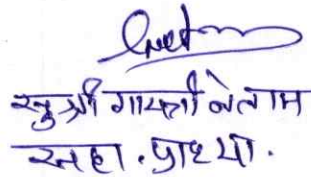 सुश्री गायत्री नेताम
सहा. प्राध्या.